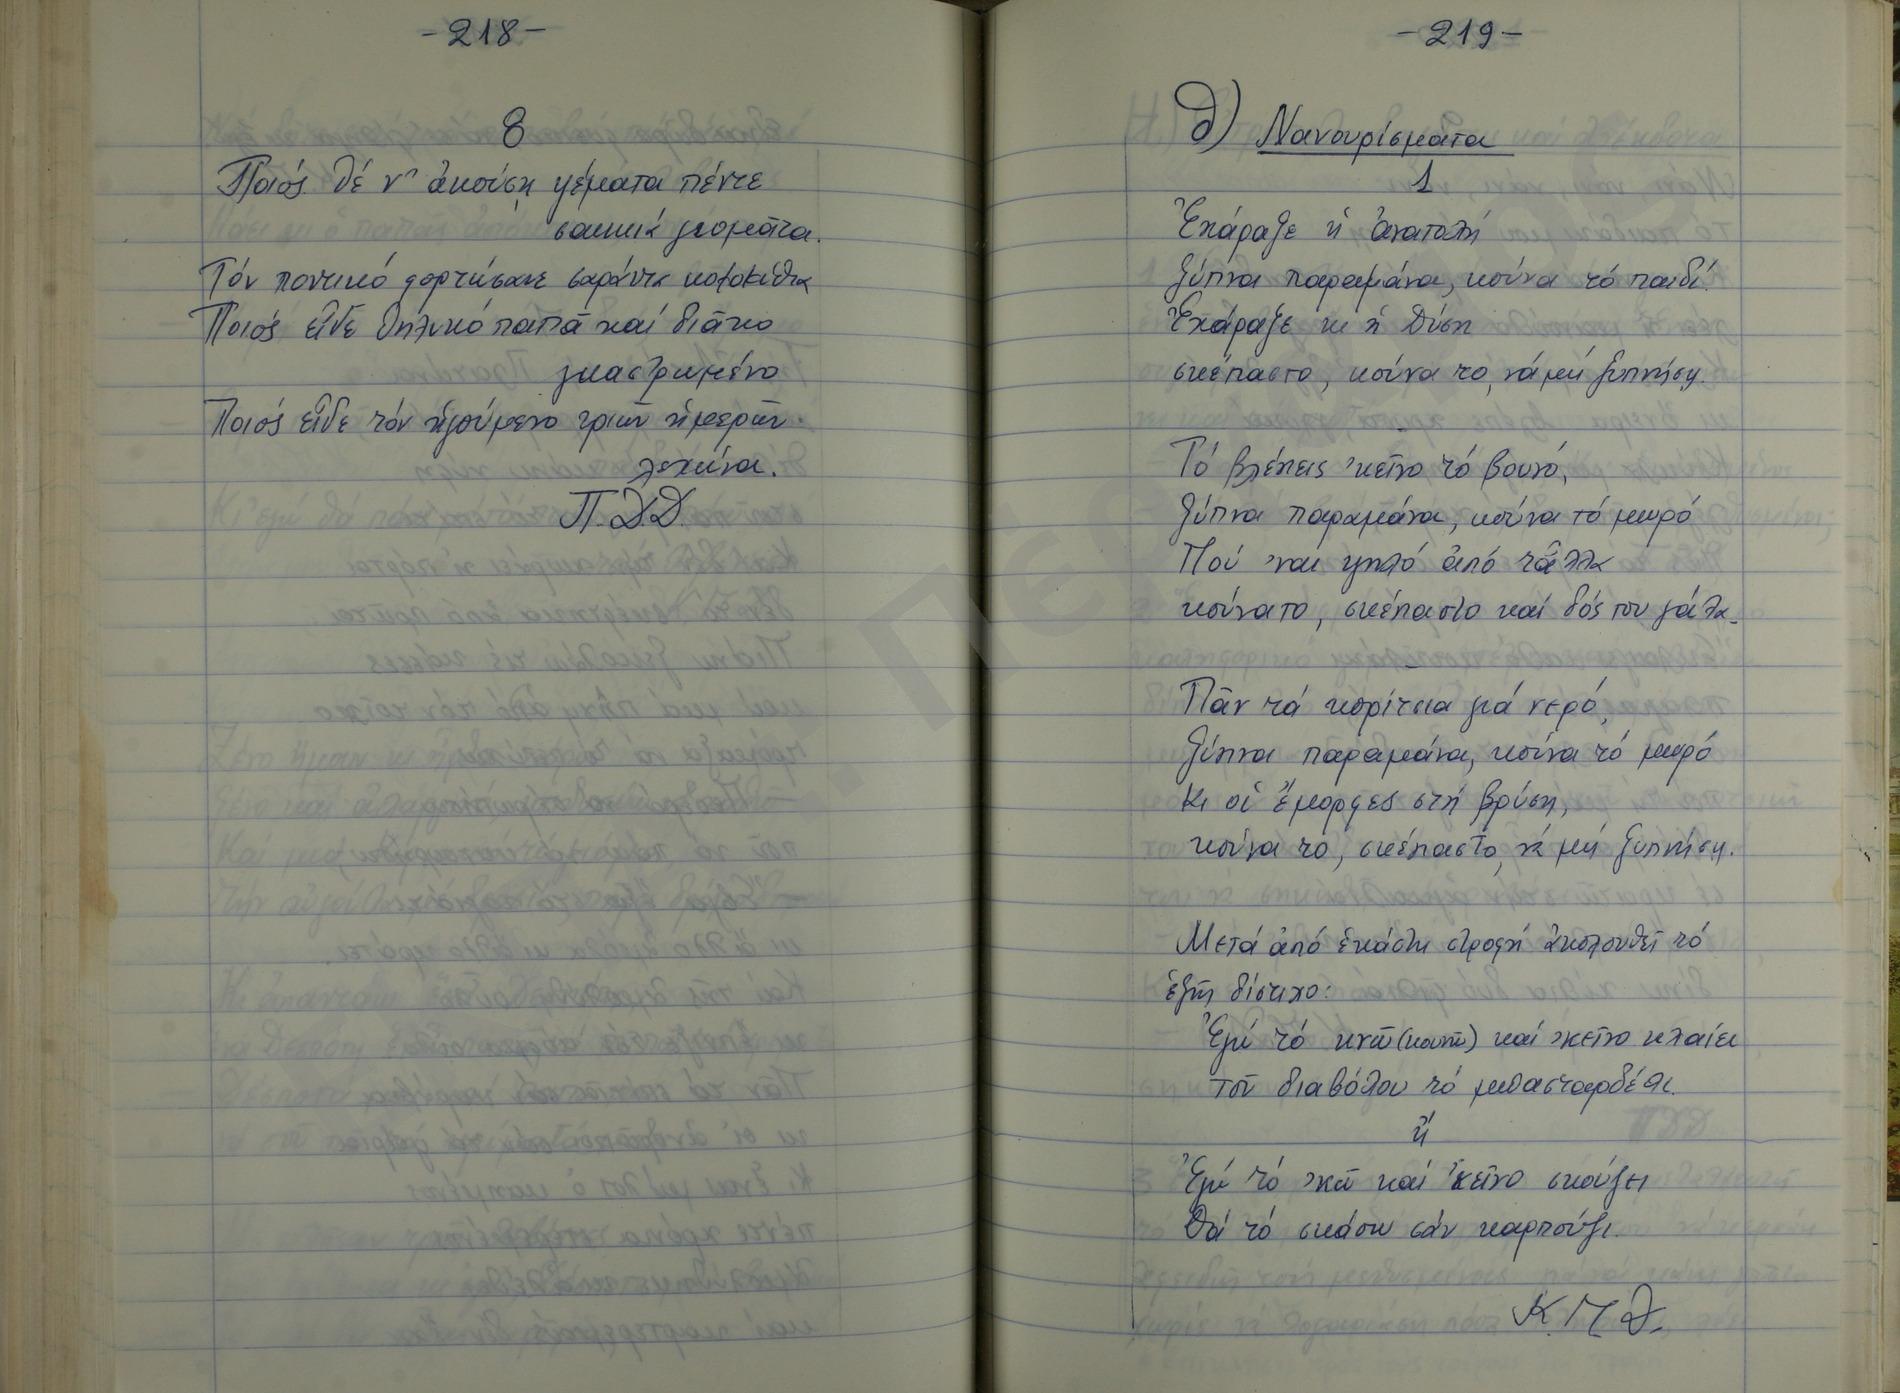 -218-
8
Ποιός θέ ν' ἀκούση ψέματα πέντε
σακκιά γιομᾶτα.
Τόν ποντικό φορτώσανε σαράντα κολοκύθια
Ποιός εἶδε θηλυκό παπᾶ καί διᾶκο
γκαστρωμένο
Ποιός εἶδε τόν ἡγούμενο τριῶν ἡμερῶν
λεχώνα.
Π.Δ.Δ.
-219-
δ) Νανουρίσματα
1
Ἐχάραξε ἡ ἀνατολή
ξύπνα παραμάνα, κούνα τό παιδί.
Ἐχάραξε κι ἡ δύση
σκέπαστο, κούνα το, νά μή ξυπνήση.
Τό βλέπεις 'κεῖνο τό βουνό,
ξύπνα παραμάνα, κούνα τό μωρό
Πού 'ναι ψηλό ἀπό τἆλλα
κούνατο, σκέπαστο καί δός του γάλα.
Πᾶν τά κορίτσια γιά νερό,
ξύπνα παραμάνα, κούνα τό μωρό
Κι οἱ ἔμορφες στή βρύση,
κούνα το, σκέπαστο, νά μή ξυπνήση.
Μετά ἀπό ἑκάστη στροφή ἀκολουθεῖ τό
ἑξῆς δίστιχο:
Ἐγώ τό κνῶ (κουνῶ) καί 'κεῖνο κλαίει
τοῦ διαβόλου τό μπασταρδέλι.
ἤ
Ἐγώ τό 'κῶ καί 'κεῖνο σκούζει
θά τό σκάσω σάν καρπούζι.
Κ.Π.Δ.